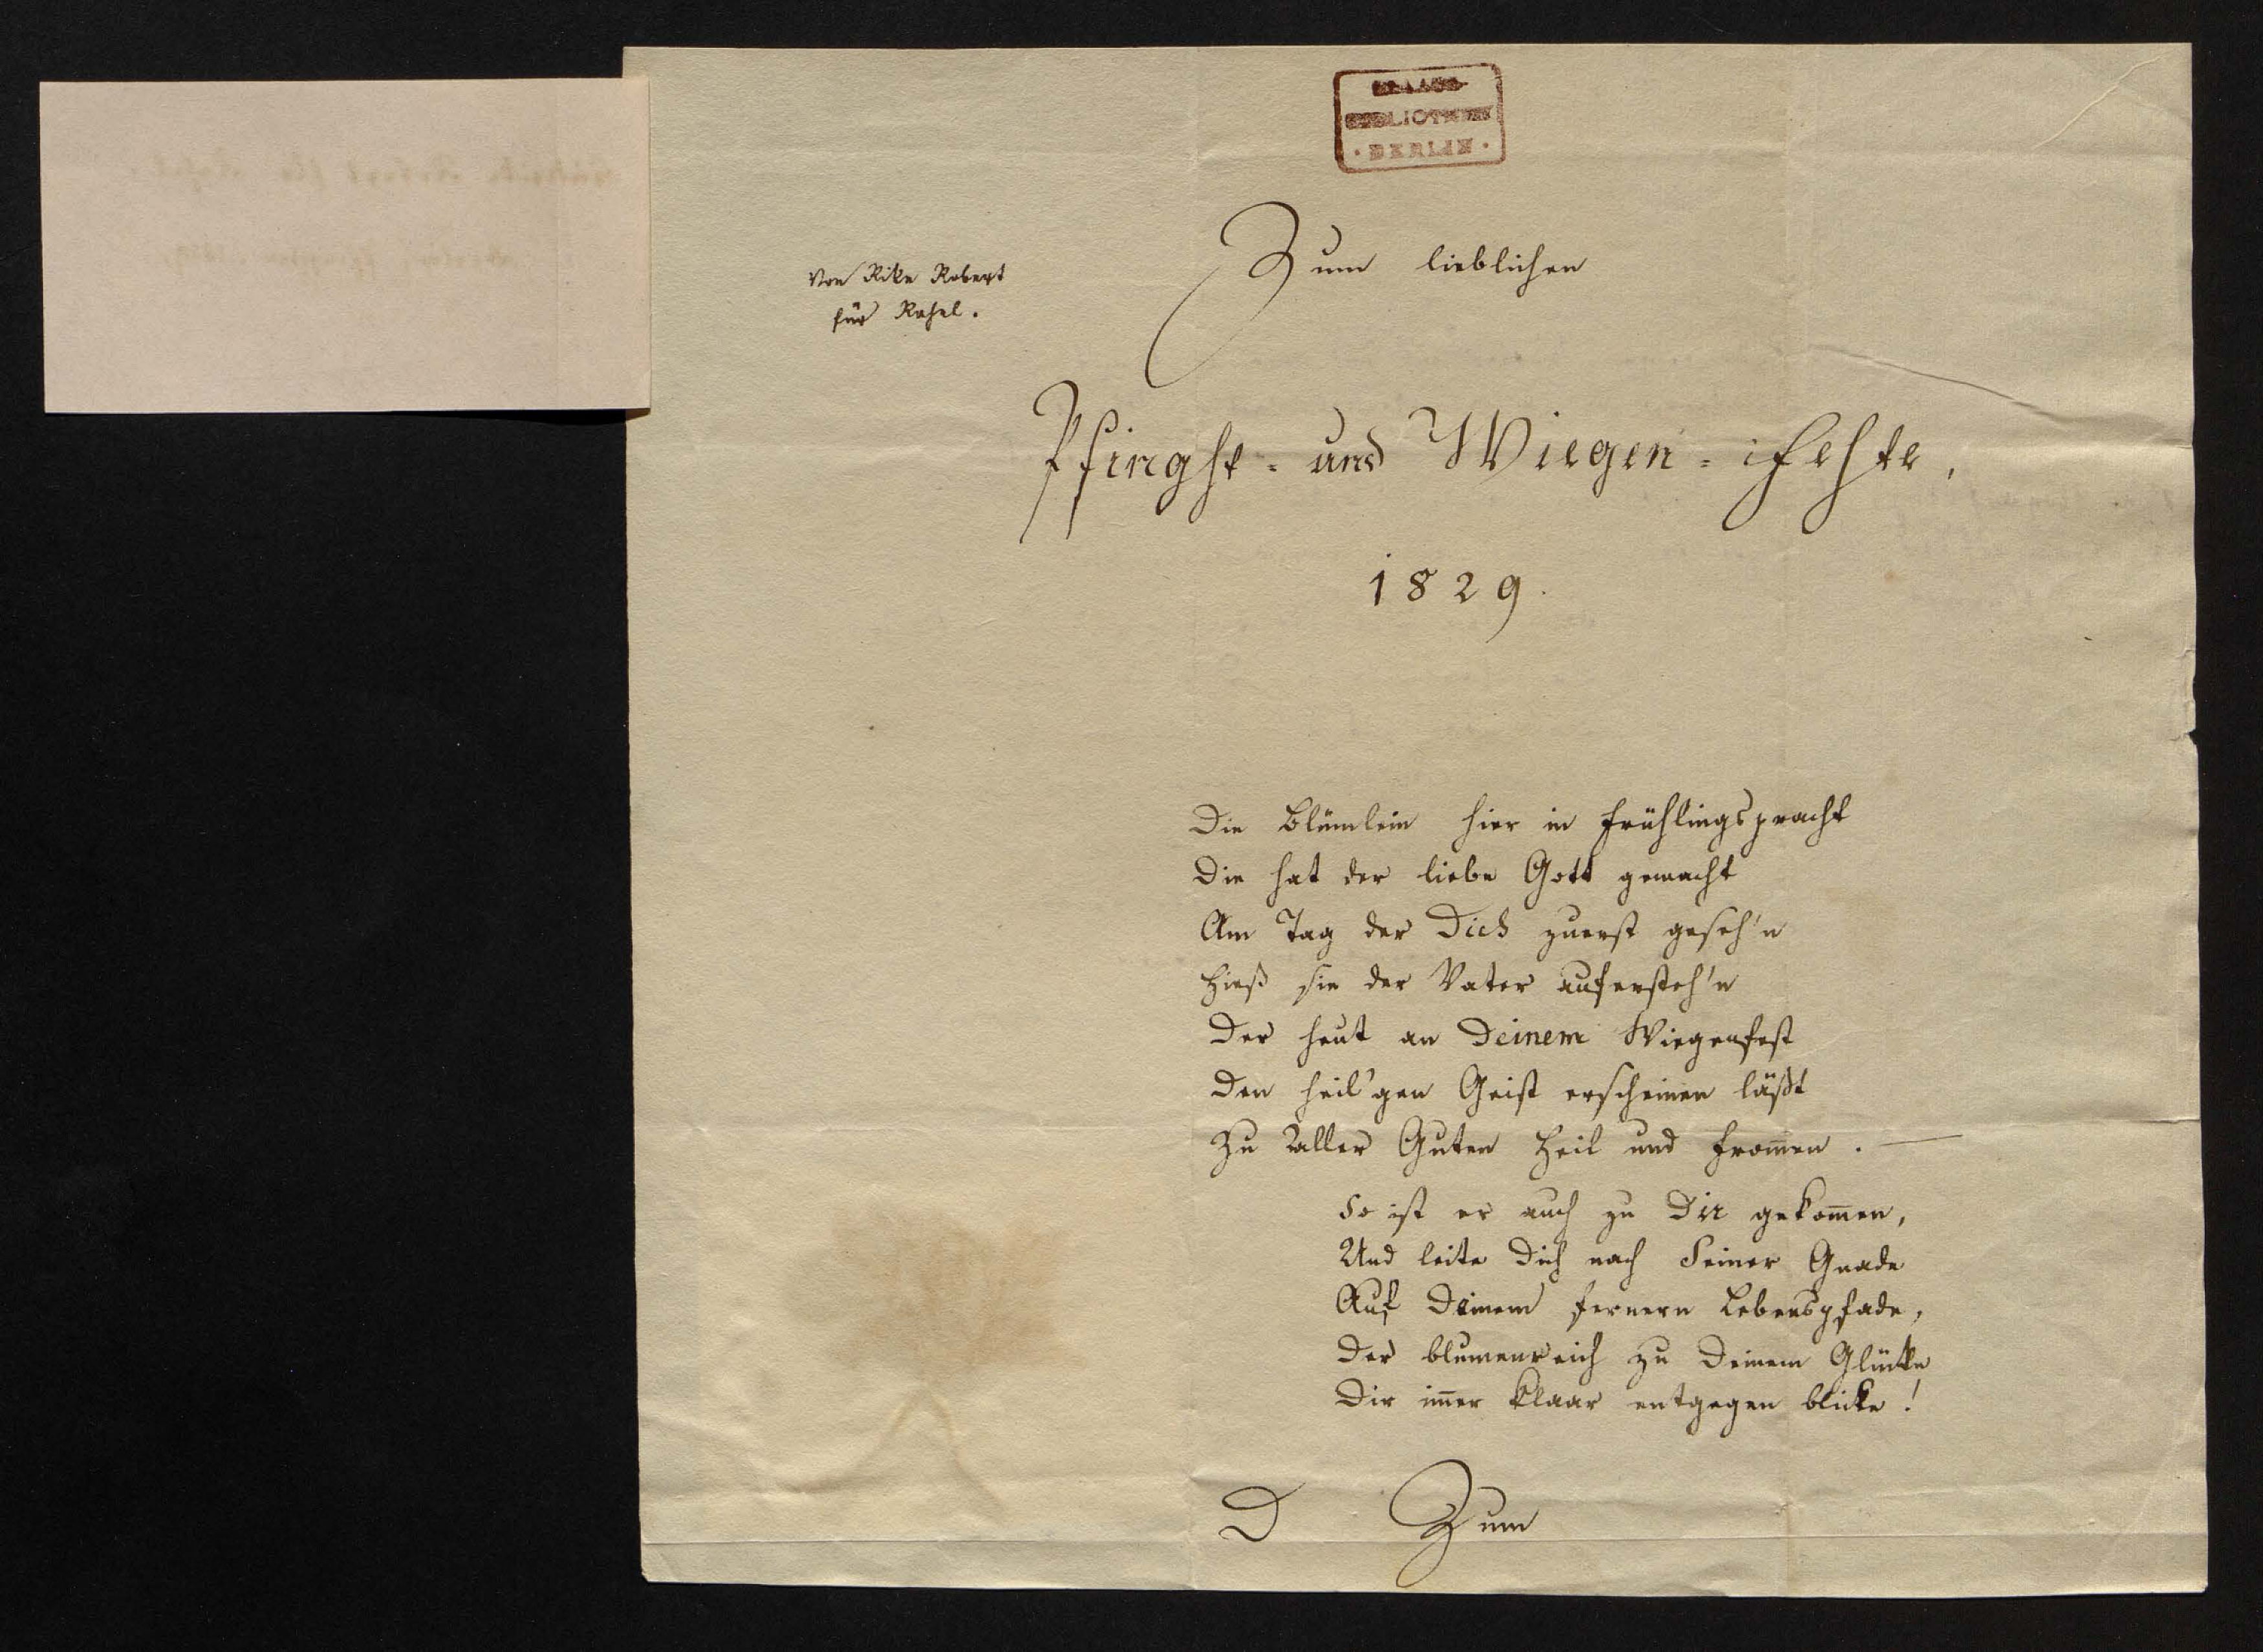 BIBLIOTHEK
BERLIN
Von Rike Robert
für Rahel.
Zum lieblichen
Pfingst- und Wiegen-Feste,
1829.
Die Blümlein hier in Frühlingspracht
Die hat der liebe Gott gemacht
Am Tag der Dich zuerst geseh'n
Hieß sie der Vater aufersteh'n
Der heut an Deinem Wiegenfest
Den heil'gen Geist erscheinen läßt
Zu aller Guten Heil und from̄en. —
So ist er auch zu Dir gekom̄en,
Und leite Dich nach Seiner Gnade
Auf Deinem fernern Lebenspfade,
Der blumenreich zu Deinem Glücke
Dir im̄er klaar entgegen blicke!
D Zum